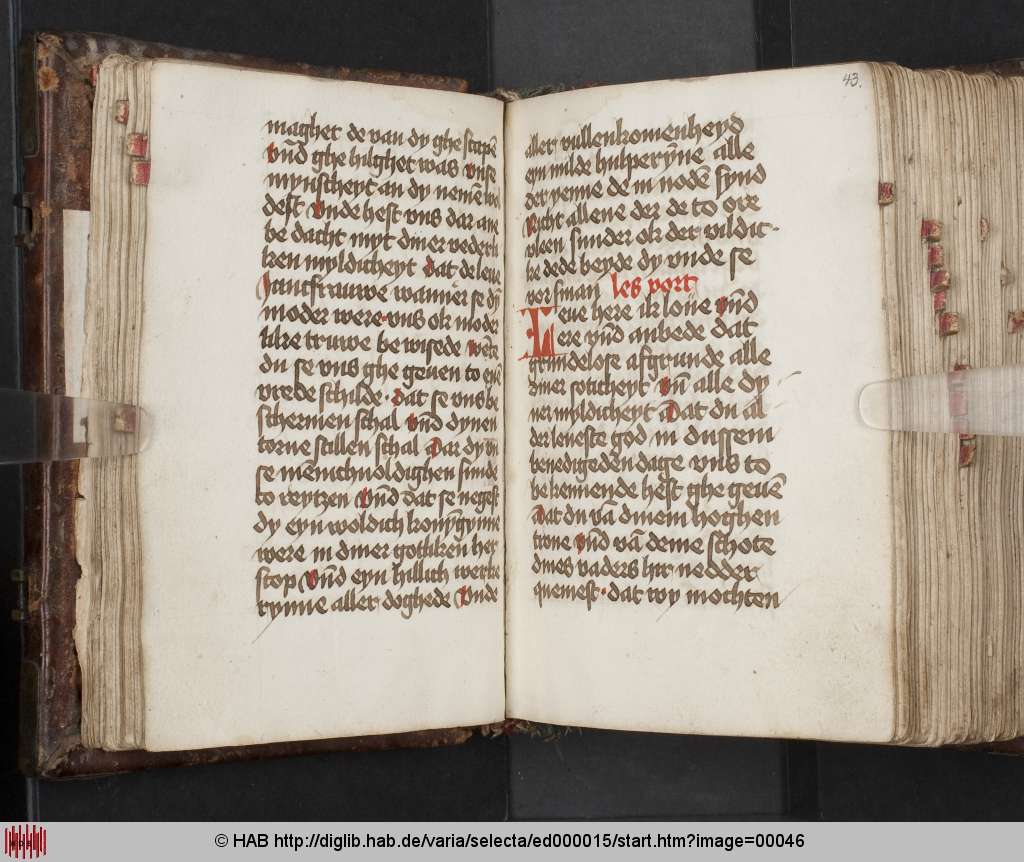 maghet de van dy ghe scapē
vnd ghe hilghet was vnse
mynscheyt an dy nemē wol
dest Vnde hest vns dar ane
be dacht myt diner vederli
ken myldicheyt dat de leue
Juncfrauwe wanner se dyn
moder were vns ok moder
like truwe be wisede wēte
du se vns ghe geuen to enē
vrede schilde · dat se vns be
schermen schal vnd dynen
torne stillen schal dar dy vn
se mēnichuoldighen sunde
to reytzen Vnd dat se negest
dy eyn woldich konnyngynne
were in diner gotliken her
scop vnd eyn hillich werke
rynne aller doghede Vnde
43.
aller vullenkomenheyd
eyn milde hulperyne alle
der yenne de in nodē synd
Nicht allene der de to ore
vleen sunder ok der vildit-
ke dede beyde dy vnde se
vor sman les vort
Leue here ik loue vnd
ere vnd anbede dat
grundelose afgrunde alle
diner soticheyt vn̄ alle dy
ner myldicheyt dat du al
der leueste god in dussem
benedigeden dage vns to
be kennende hest ghe geuē
dat du vā dinem hoghen
trone vnd vā deme schote
dines vaders hir nedder
quemest · dat wy mochten
© HAB http://diglib.hab.de/varia/selecta/ed000015/start.htm?image=00046